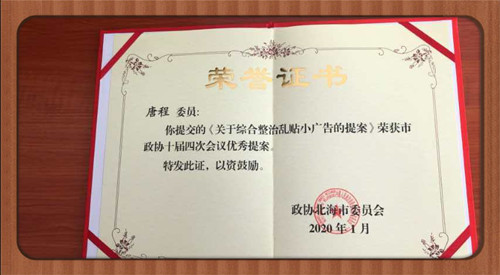 荣誉证书
唐程 委员：
你提交的《关于综合整治乱贴小广告的提案》荣获市
政协十届四次会议优秀提案。
特发此证，以资鼓励。
政协北海市委员会
2020年1月